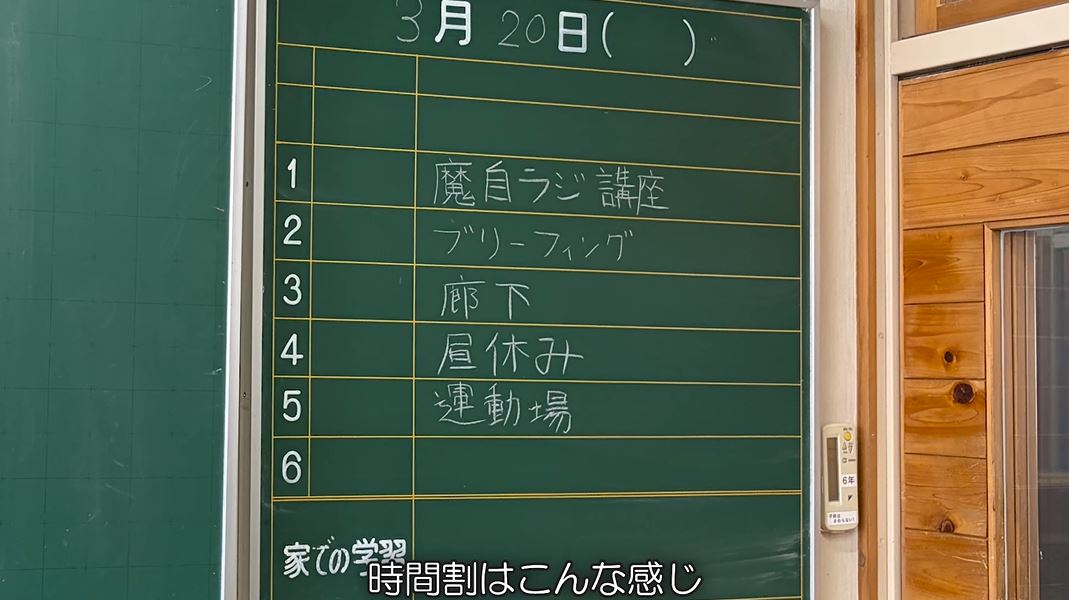 3月20日( )
1 魔自ラジ講座
2 ブリーフィング
3 廊下
4 昼休み
5 運動場
6
6年
家での学習
時間割はこんな感じ